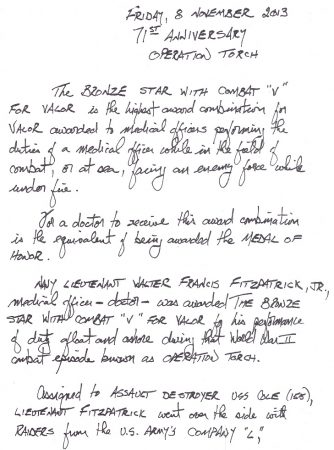 FRIDAY, 8 NOVEMBER 2013
71ST ANNIVERSARY
OPERATION TORCH
The BRONZE STAR WITH COMBAT "V"
FOR VALOR is the highest award combination for
VALOR awarded to medical officers performing the
duties of a medical officer while in the field of
combat, or at sea, facing an enemy force while
under fire.
For a doctor to receive this award combination
is the equivalent of being awarded the MEDAL OF
HONOR.
NAVY LIEUTENANT WALTER FRANCIS FITZPATRICK, JR.,
medical officer - doctor - was awarded THE BRONZE
STAR WITH COMBAT "V" FOR VALOR by his performance
of duty afloat and ashore during that World War II
combat episode known as OPERATION TORCH.
Assigned to ASSAULT DESTROYER USS COLE (155),
LIEUTENANT FITZPATRICK went over the side with
RAIDERS from the U.S. ARMY'S COMPANY "L,"